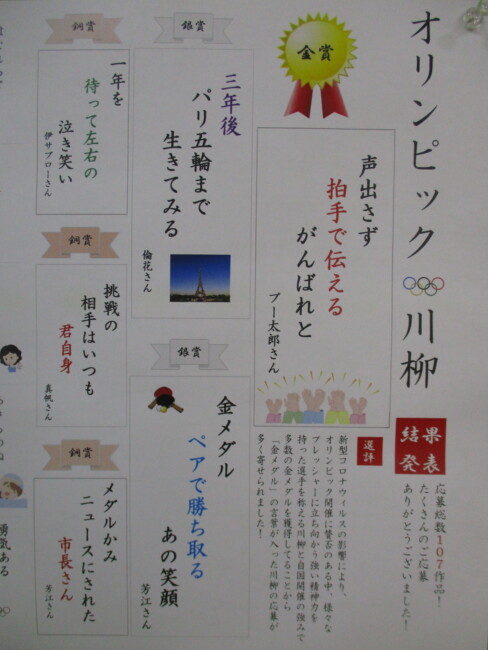 オリンピック川柳
結果
発表
応募総数107作品！
たくさんのご応募
ありがとうございました！
金賞
声出さず
拍手で伝える
がんばれと
プー太郎さん
選評
新型コロナウィルスの影響により、
オリンピック開催に賛否のある中、様々な
プレッシャーに立ち向かう強い精神力を
持った選手を称える川柳と自国開催の強みで
多数の金メダルを獲得してることから
「金メダル」の言葉が入った川柳の応募が
多く寄せられました！
銀賞
三年後
パリ五輪まで
生きてみる
倫花さん
銀賞
金メダル
ペアで勝ち取る
あの笑顔
芳江さん
銅賞
一年を
待って左右の
泣き笑い
伊サブローさん
銅賞
挑戦の
相手はいつも
君自身
真帆さん
銅賞
メダルかみ
ニュースにされた
市長さん
芳江さん
勇気ある